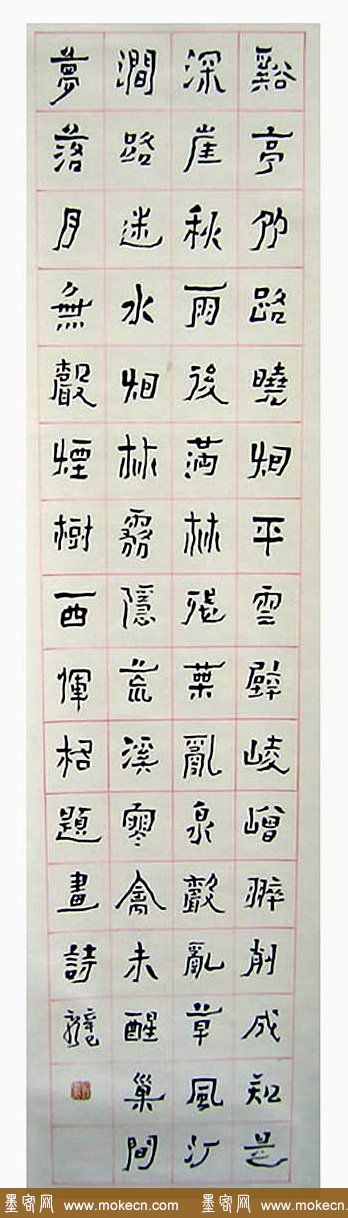 谿亭路曉烟平雲壁崚嶒翠削成知是
深崖秋雨後滿林殘葉亂泉聲亂草風汀
澗路迷水烟林霧隱荒溪寒禽未醒巢間
夢落月無聲煙樹西惲格題畫詩
墨客网 www.mokecn.com 墨客网 www.mokecn.com